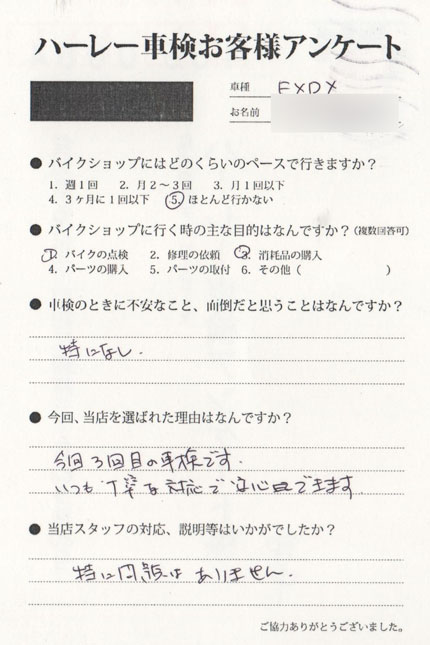 ハーレー車検お客様アンケート
車種 FXDX
お名前
● バイクショップにはどのくらいのペースで行きますか？
1. 週1回 2. 月2〜3回 3. 月1回以下
4. 3ヶ月に1回以下 5. ほとんど行かない
● バイクショップに行く時の主な目的はなんですか？(複数回答可)
1. バイクの点検 2. 修理の依頼 3. 消耗品の購入
4. パーツの購入 5. パーツの取付 6. その他（ ）
● 車検のときに不安なこと、面倒だと思うことはなんですか？
特になし.
● 今回、当店を選ばれた理由はなんですか？
今回3回目の車検です.
いつも丁寧な対応で安心できます
● 当店スタッフの対応、説明等はいかがでしたか？
特に問題はありません.
ご協力ありがとうございました。